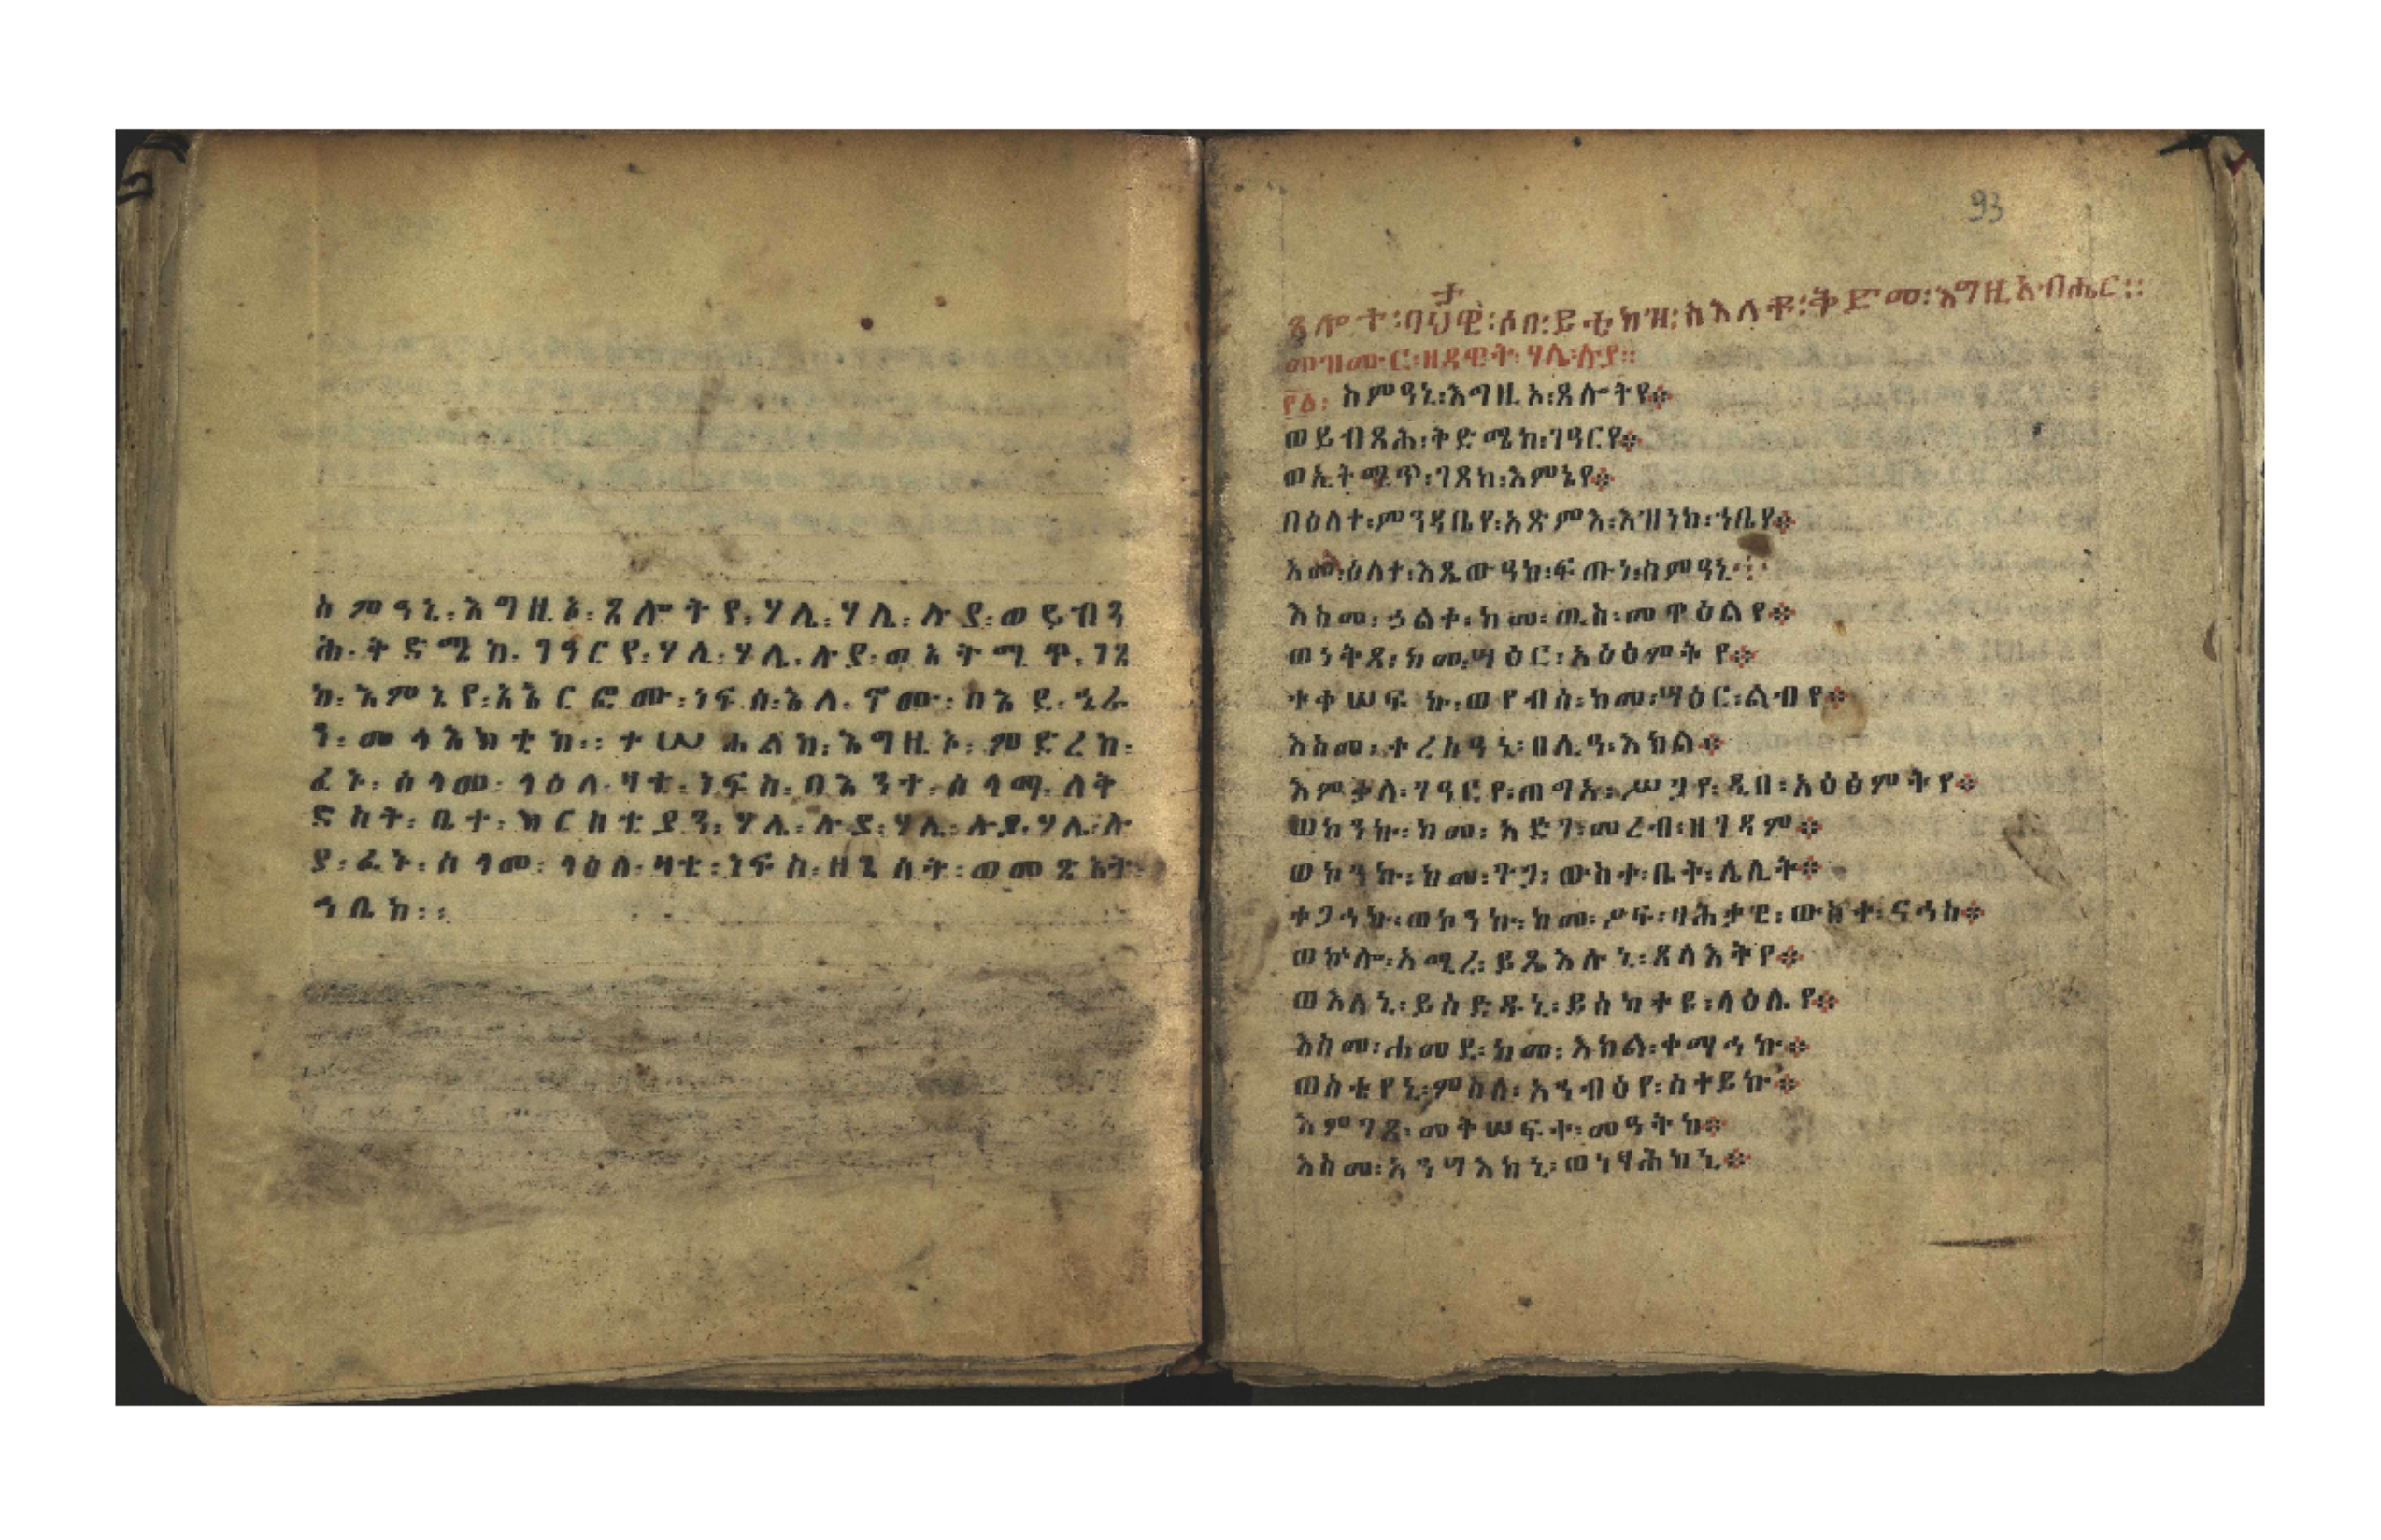 ስምዓኒ፡እግዚኦ፡ጸሎትየ፡ሃሌ፡ሃሌ፡ሉያ፡ወይብጻ
ሕ፡ቅድሜከ፡ገዓርየ፡ሃሌ፡ሃሌ፡ሉያ፡ወኢትሚጥ፡ገጸ
ከ፡እምኔየ፡አዕርፎሙ፡ነፍሰ፡እለ፡
መላእክቲከ፡፡ተሠሐልከ፡እግዚኦ፡ምድረከ፡
ፈኑ፡ሰላመ፡ላዕለ፡ዛቲ፡ነፍስ፡በእንተ፡ሰላማ፡ለት
ድስት፡ቤተ፡ክርስቲያን፡ሃሌ፡ሉያ፡ሃሌ፡ሉያ፡ሃሌ፡ሉ
ያ፡ፈኑ፡ሰላመ፡ላዕለ፡ዛቲ፡ነፍስ፡ወመጽአት
ኀቤከ፡፡
93
ታ
ጸሎት፡ባህዊ፡ሶበ፡ይቴክዝ፡ስእለቶ፡ቅድመ፡እግዚአብሔር፡፡
መዝሙር፡ዘዳዊት፡ሃሌ፡ሉያ፡፡
፻፩፡ስምዓኒ፡እግዚኦ፡ጸሎትየ፨
ወይብጻሕ፡ቅድሜከ፡ገዓርየ፨
ወኢትሚጥ፡ገጸከ፡እምኔየ፨
በዕለተ፡ምንዳቤየ፡አጽምእ፡እዝነከ፡ኀቤየ፨
አመ፡ዕለተ፡እጼውዓከ፡ፍጡነ፡ስምዓኒ፨
እስመ፡ኃልቀ፡ከመ፡ጢስ፡መዋዕልየ፨
ወነትጸ፡ከመ፡ሣዕር፡አዕፅምትየ፨
ተቀሠፍኩ፡ወየብሰ፡ከመ፡ሣዕር፡ልብየ፨
እስመ፡ተረስዓኒ፡በሊዓ፡እክል፨
እምቃለ፡ገዓርየ፡ጠግአ፡ሥጋየ፡ዲበ፡አዕፅምትየ፨
ወኮንኩ፡ከመ፡አድገ፡መረብ፡ዘገዳም፨
ወኮንኩ፡ከመ፡ጉጋ፡ውስተ፡ቤት፡ሌሊት፨
ተጋኀኩ፡ወኮንኩ፡ከመ፡ዖፍ፡ባሕታዊ፡ውስተ፡ናኅስ፨
ወኵሎ፡አሚረ፡ይጼእሉኒ፡ጸላእትየ፨
ወእለኒ፡ይሰድዱኒ፡ይሰካተዩ፡ላዕሌየ፨
እስመ፡ሐመደ፡ከመ፡እክል፡ቀማኅኩ፨
ወስቴየኒ፡ምስለ፡አንብዕየ፡ሰተይኩ፨
እምገጸ፡መቅሠፍተ፡መዓትከ፨
እስመ፡አንሣእከኒ፡ወነፃሕከኒ፨